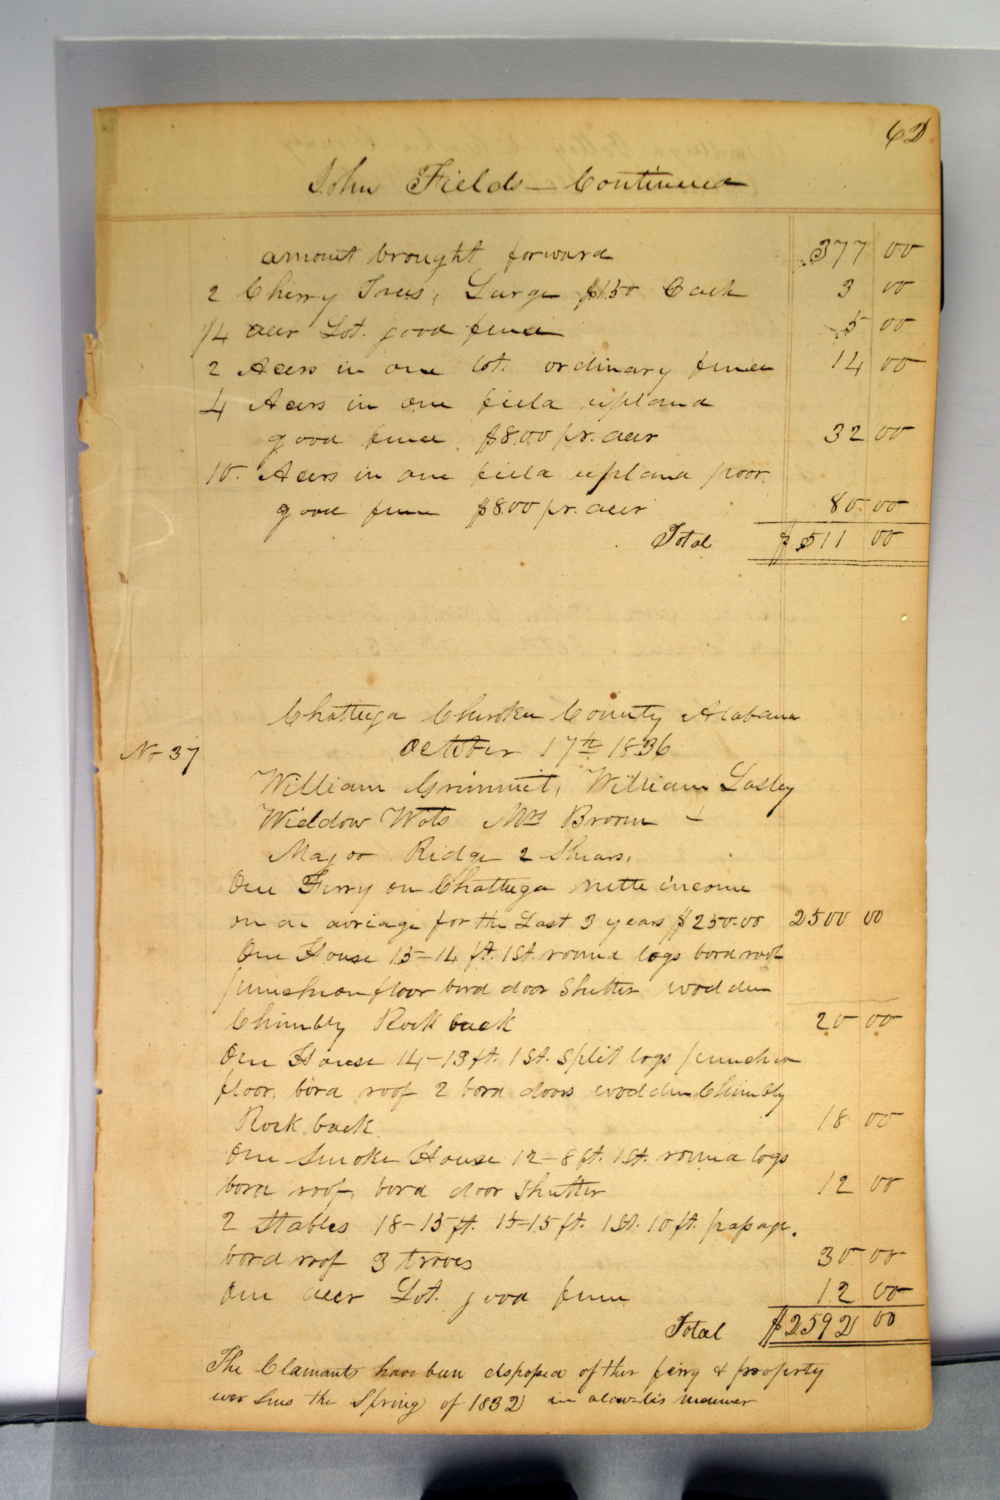 62
John Fields Continued
amount brought forward 377 00
2 Cherry Trees, Large $1.50 Each 3 00
1/4 acer Lot. good fence 5 00
2 Acers in one lot. ordinary fence 14 00
4 Acers in one field upland
good fence $8.00 pr. acer 32 00
10. Acers in one field upland poor
good fence $8.00 pr. acer 80 00
Total $511 00
Chattuga Cherokee County Alabama
No 37 October 17th 1836
William Grimmit, William Lasley
Widdow Wots Mrs Broom
Major Ridge 2 Shears,
One Ferry on Chattuga nette income
on an avriage for the Last 3 years $250.00 2500 00
One House 15-14 ft. 1 St. round logs bord roof
puncheon floor bord door Shutter wodden
Chimbly Rock back 20 00
One House 14-13 ft. 1 St. Split logs puncheon
floor, bord roof 2 bord doors wodden Chimbly
Rock back 18 00
One Smoke House 12-8 ft. 1 St. round logs
bord roof, bord door Shutter 12 00
2 Stables 18-15 ft. 15-15 ft. 1 St. 10 ft. passage.
bord roof 3 troves 30 00
One acer Lot. good fence 12 00
Total $2592 00
The Clamants have been disposed of ther ferry & property
ever sins the Spring of 1832 in manner